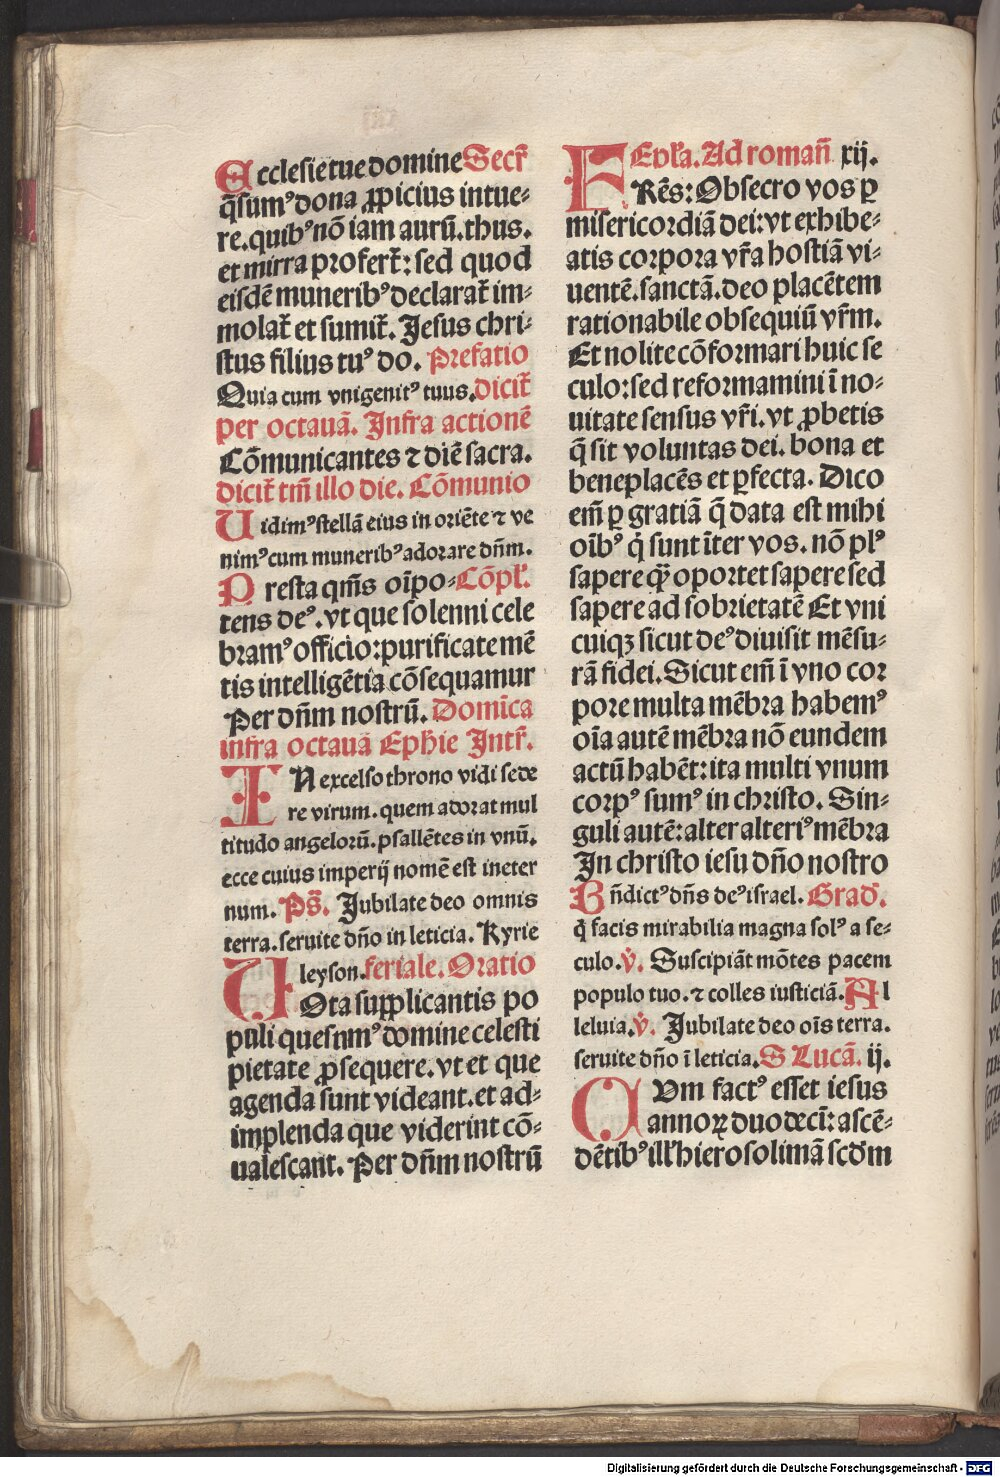 Ecclesie tue domine Secr̄
q̄sumꝰ dona ꝓpicius intue⸗
re. quibꝰ nō iam aurū. thus.
et mirra profert̄: sed quod
eisdē muneribꝰ declarat̄ im⸗
molat̄ et sumit̄. Jesus chri⸗
stus filius tuꝰ do. Prefatio
Quia cum vnigenitꝰ tuus. dicit̄
per octauā. Infra actionē
Cōmunicantes ⁊ diē sacra.
dicit̄ tm̄ illo die. Cōmunio
Uidimꝰ stellā eius in oriēte ⁊ ve
nimꝰ cum muneribꝰ adorare dn̄m.
Presta qm̄s oīpo⸗ Cōpl̄.
tens deꝰ. vt que solenni cele
bramꝰ officio: purificate mē
tis intelligētia cōsequamur
Per dn̄m nostrū. Domīca
infra octauā Ephie Intr̄.
IN excelso throno vidi sede
re virum. quem adorat mul
titudo angelorū. psallētes in vnū.
ecce cuius imperij nomē est in eter
num. Ps̄. Jubilate deo omnis
terra. seruite dn̄o in leticia. Kyrie
leyson. feriale. Oratio
UOta supplicantis po
puli quesumꝰ domine celesti
pietate ꝓsequere. vt et que
agenda sunt videant. et ad⸗
implenda que viderint cō⸗
ualescant. Per dn̄m nostrū
Epl̄a. Ad roman̄ xij.
FRēs: Obsecro vos ꝑ
misericordiā dei: vt exhibe⸗
atis corpora vr̄a hostiā vi⸗
uentē. sanctā. deo placētem
rationabile obsequiū vr̄m.
Et nolite cōformari huic se
culo: sed reformamini ī no⸗
uitate sensus vr̄i. vt ꝓbetis
q̄ sit voluntas dei. bona et
beneplacēs et ꝑfecta. Dico
em̄ ꝑ gratiā q̄ data est mihi
oībꝰ q̇ sunt īter vos. nō plꝰ
sapere qꝫ̄ oportet sapere sed
sapere ad sobrietatē Et vni
cuiqꝫ sicut deꝰ diuisit mēsu⸗
rā fidei. Sicut em̄ ī vno cor
pore multa mēbra habemꝰ
oīa autē mēbra nō eundem
actū habēt: ita multi vnum
corpꝰ sumꝰ in christo. Sin⸗
guli autē: alter alteriꝰ mēbra
In christo iesu dn̄o nostro
Bn̄dictꝰ dn̄s deꝰ israel. Grad̄.
q̇ facis mirabilia magna solꝰ a se⸗
culo. v̇. Suscipiāt mōtes pacem
populo tuo. ⁊ colles iusticiā. Al
leluia. v̇. Jubilate deo oīs terra.
seruite dn̄o ī leticia. S Lucā. ij.
CUm factꝰ esset iesus
annoꝝ duodecī: ascē⸗
dētibꝰ ill' hierosolimā scd̄m
Digitalisierung gefördert durch die Deutsche Forschungsgemeinschaft - DFG